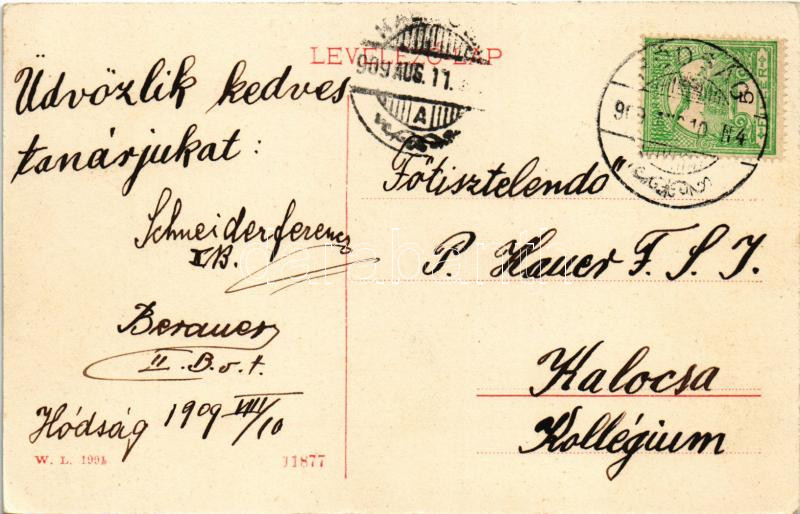 LEVELEZŐ-LAP
Üdvözlik kedves
tanárjukat:
Schneider ferencz
II B.
Berauer
II. B. o. t.
Hódság 1909 VIII/10
W. L. 1991
11877
909 AUG. 11.
A
HÓDSÁG
Főtisztelendő
P. Hauer F. S. J.
Kalocsa
Kollégium
darabanth